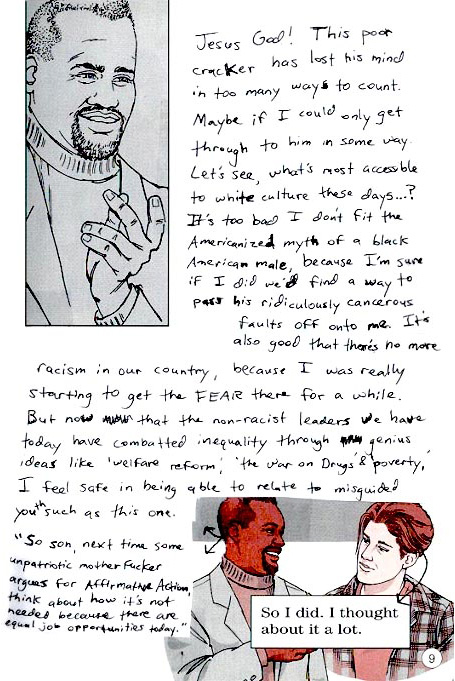 Jesus God! This poor
cracker has lost his mind
in too many ways to count.
Maybe if I could only get
through to him in some way.
Let's see, what's most accessible
to white culture these days...?
It's too bad I don't fit the
Americanized myth of a black
American male, because I'm sure
if I did we'd find a way to
pass his ridiculously cancerous
faults off onto me. It's
also good that there's no more
racism in our country, because I was really
starting to get the FEAR there for a while.
But now that the non-racist leaders we have
today have combatted inequality through genius
ideas like 'welfare reform', 'the war on Drugs' & 'poverty,'
I feel safe in being able to relate to misguided
youth such as this one.
"So son, next time some
unpatriotic mother fucker
argues for Affirmative Action,
think about how it's not
needed because there are
equal job opportunities today."
So I did. I thought
about it a lot.
9